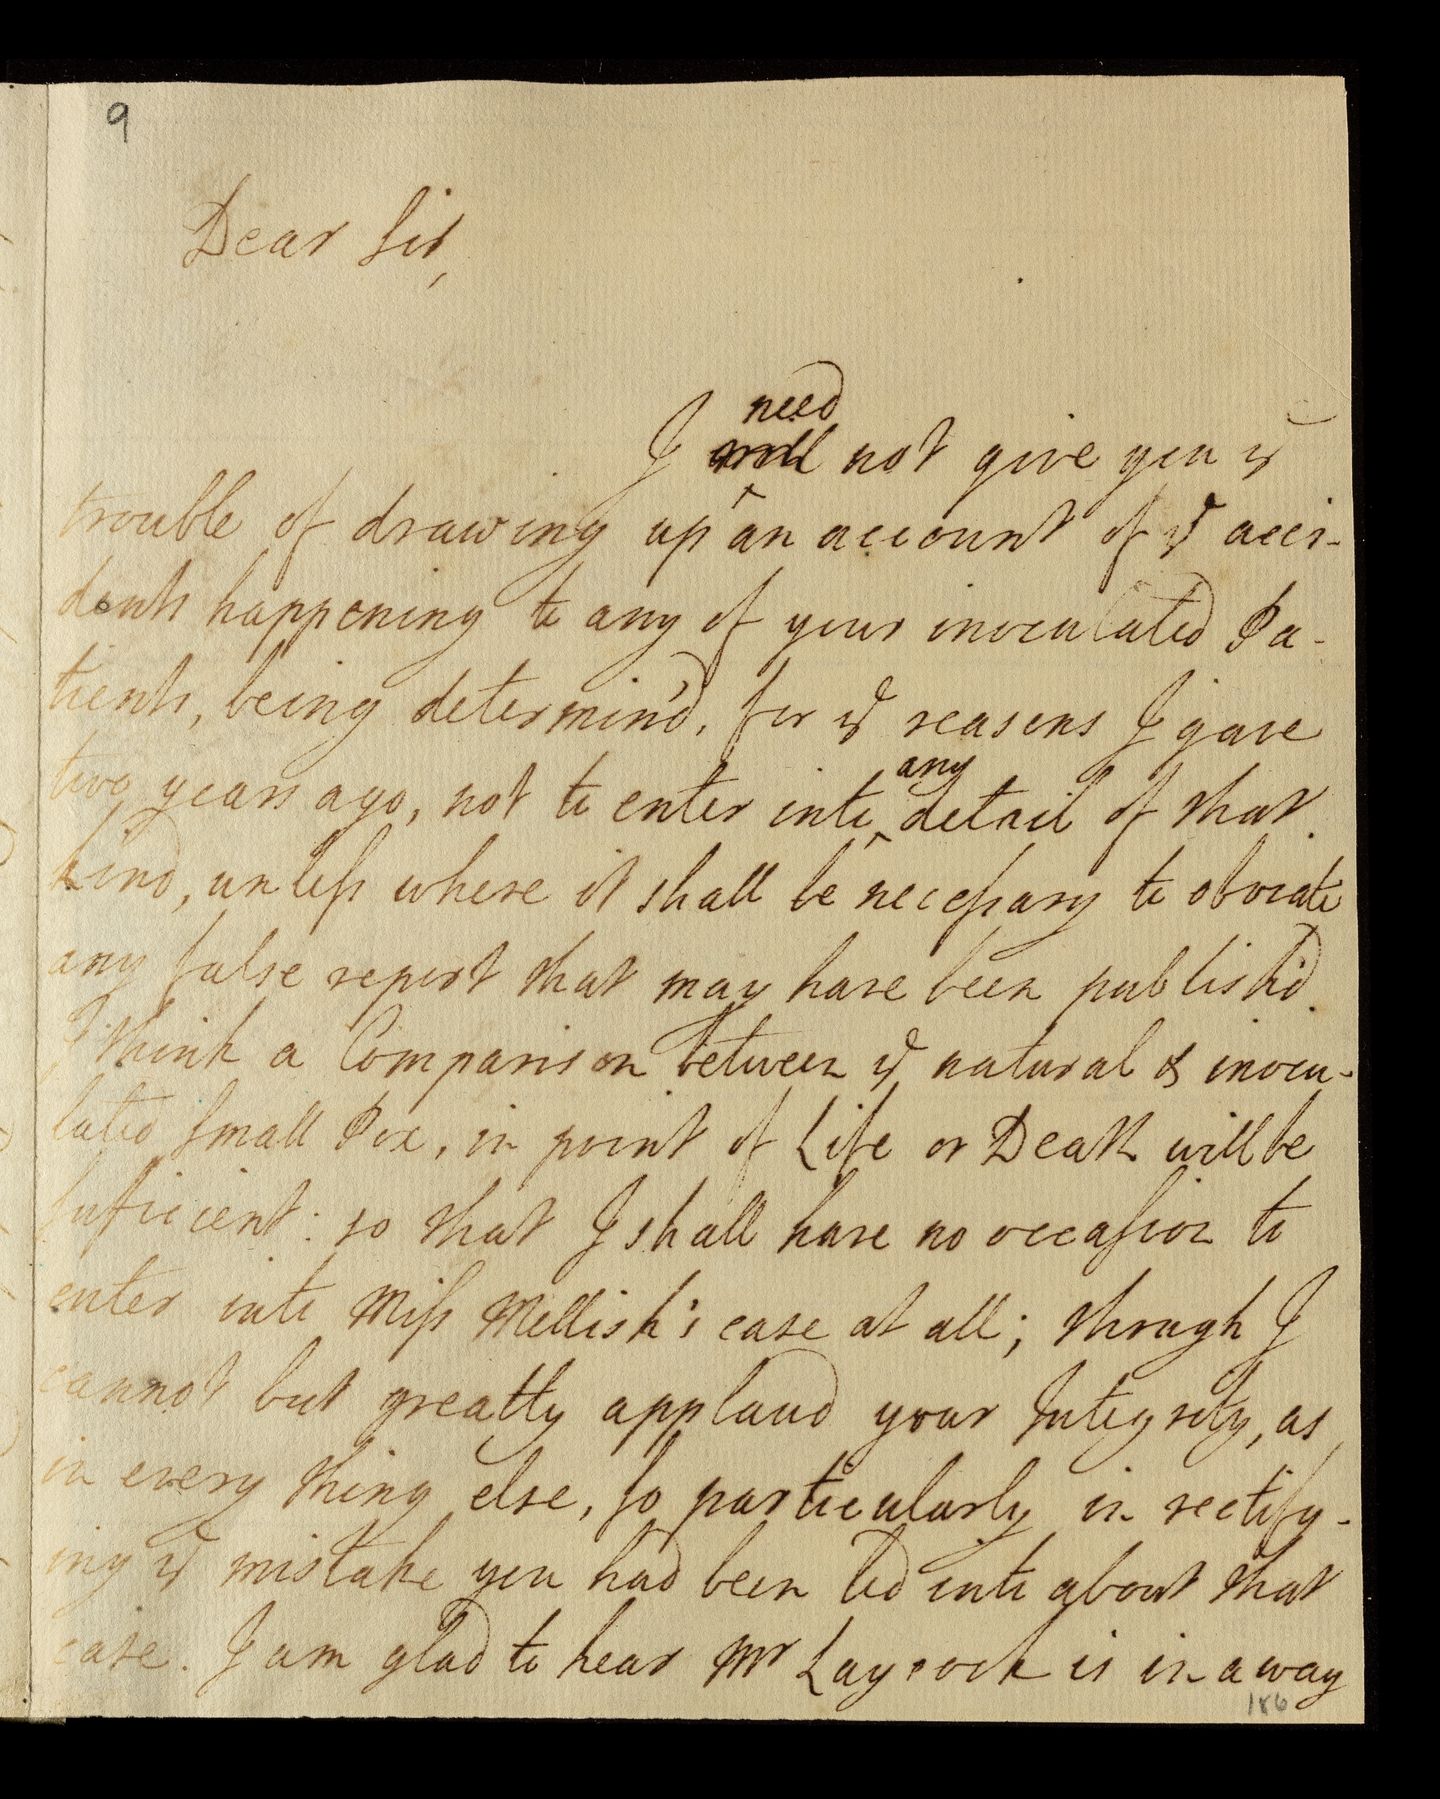 9
Dear Sir,
need
I will not give you ye
trouble of drawing up an account of ye acci-
dents happening to any of your inoculated Pa-
tients, being determin'd, for ye reasons I gave
any
two years ago, not to enter into ^ detail of that
kind, unless where it shall be necessary to obviate
any false report that may have been publish'd.
I think a Comparison between ye natural & inocu-
lated Small Pox, in point of Life or Death will be
sufficient: so that I shall have no occasion to
enter into Miss Mellish's case at all; though I
cannot but greatly applaud your Integrity, as
in every thing else, so particularly in rectify-
ing ye mistake you had been led into about that
case. I am glad to hear Mr Laycock is in a way
186